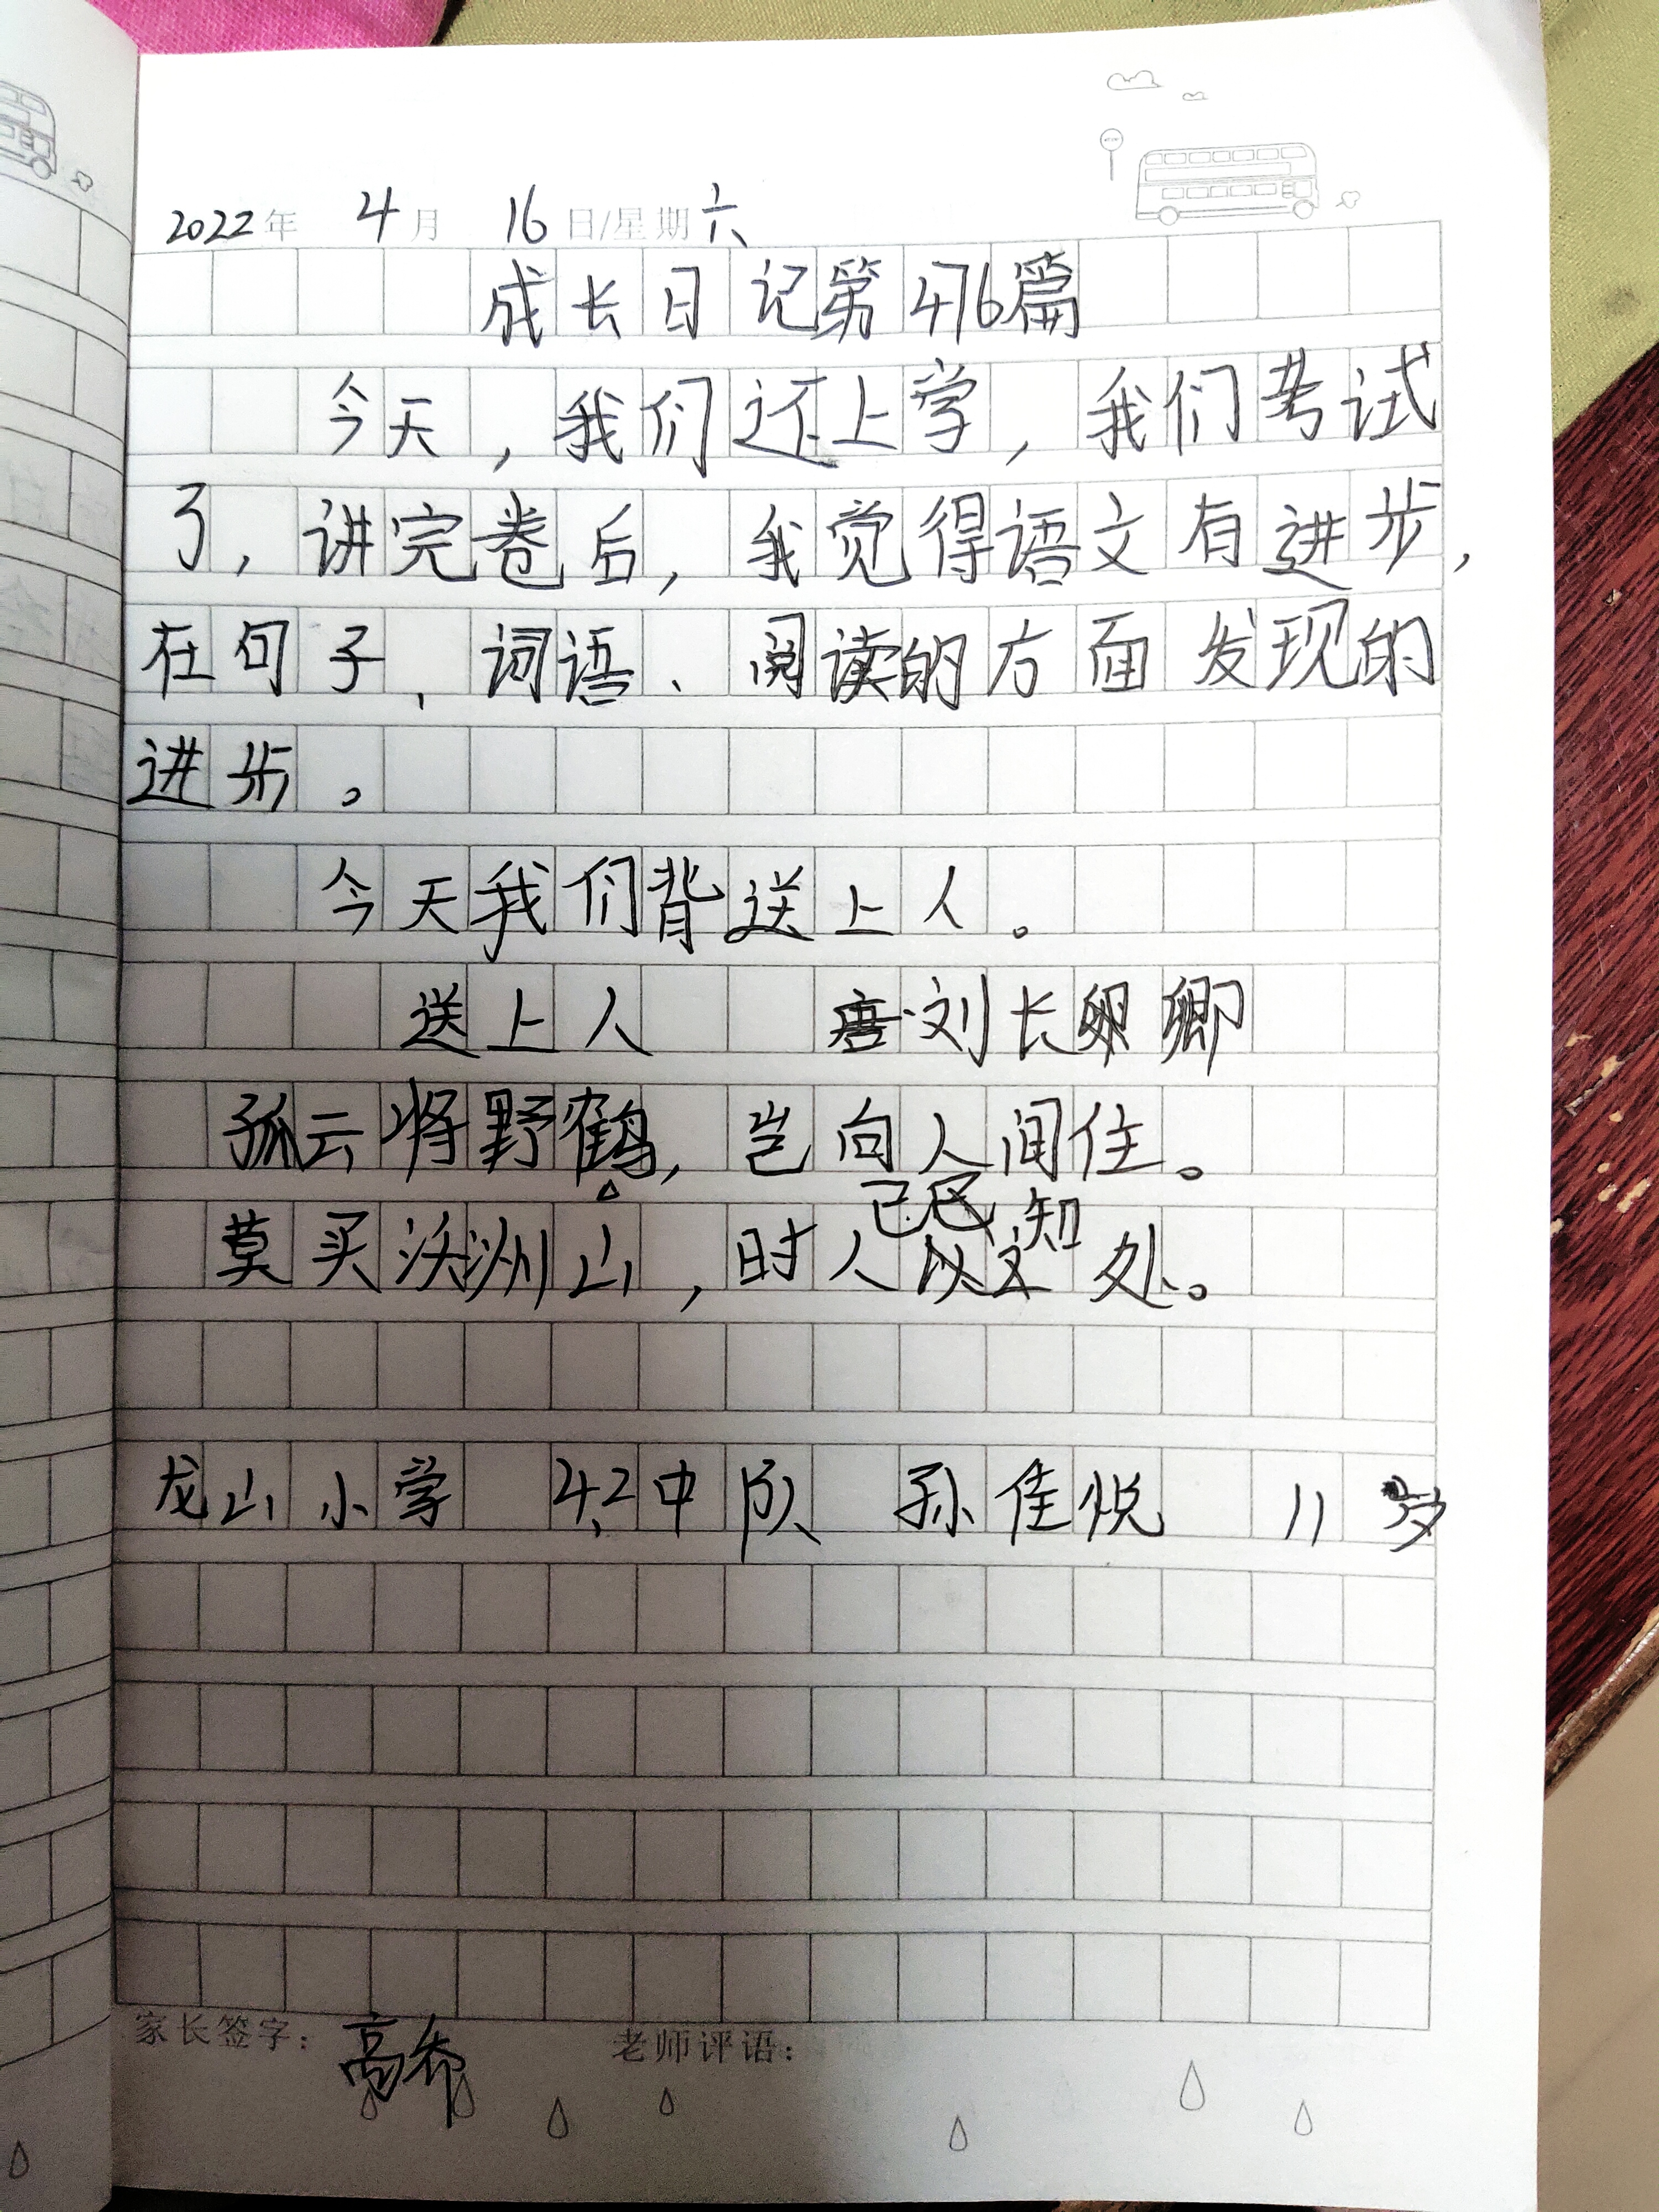 2022年 4月 16日/星期六
成长日记第476篇
今天，我们还上学，我们考试
了，讲完卷后，我觉得语文有进步，
在句子、词语、阅读的方面发现的
进步。
今天我们背送上人。
送上人 唐·刘长卿
孤云将野鹤，岂向人间住。
莫买沃洲山，时人已知处。
龙山小学 4.2中队 孙佳悦 11岁
家长签字：高希 老师评语：